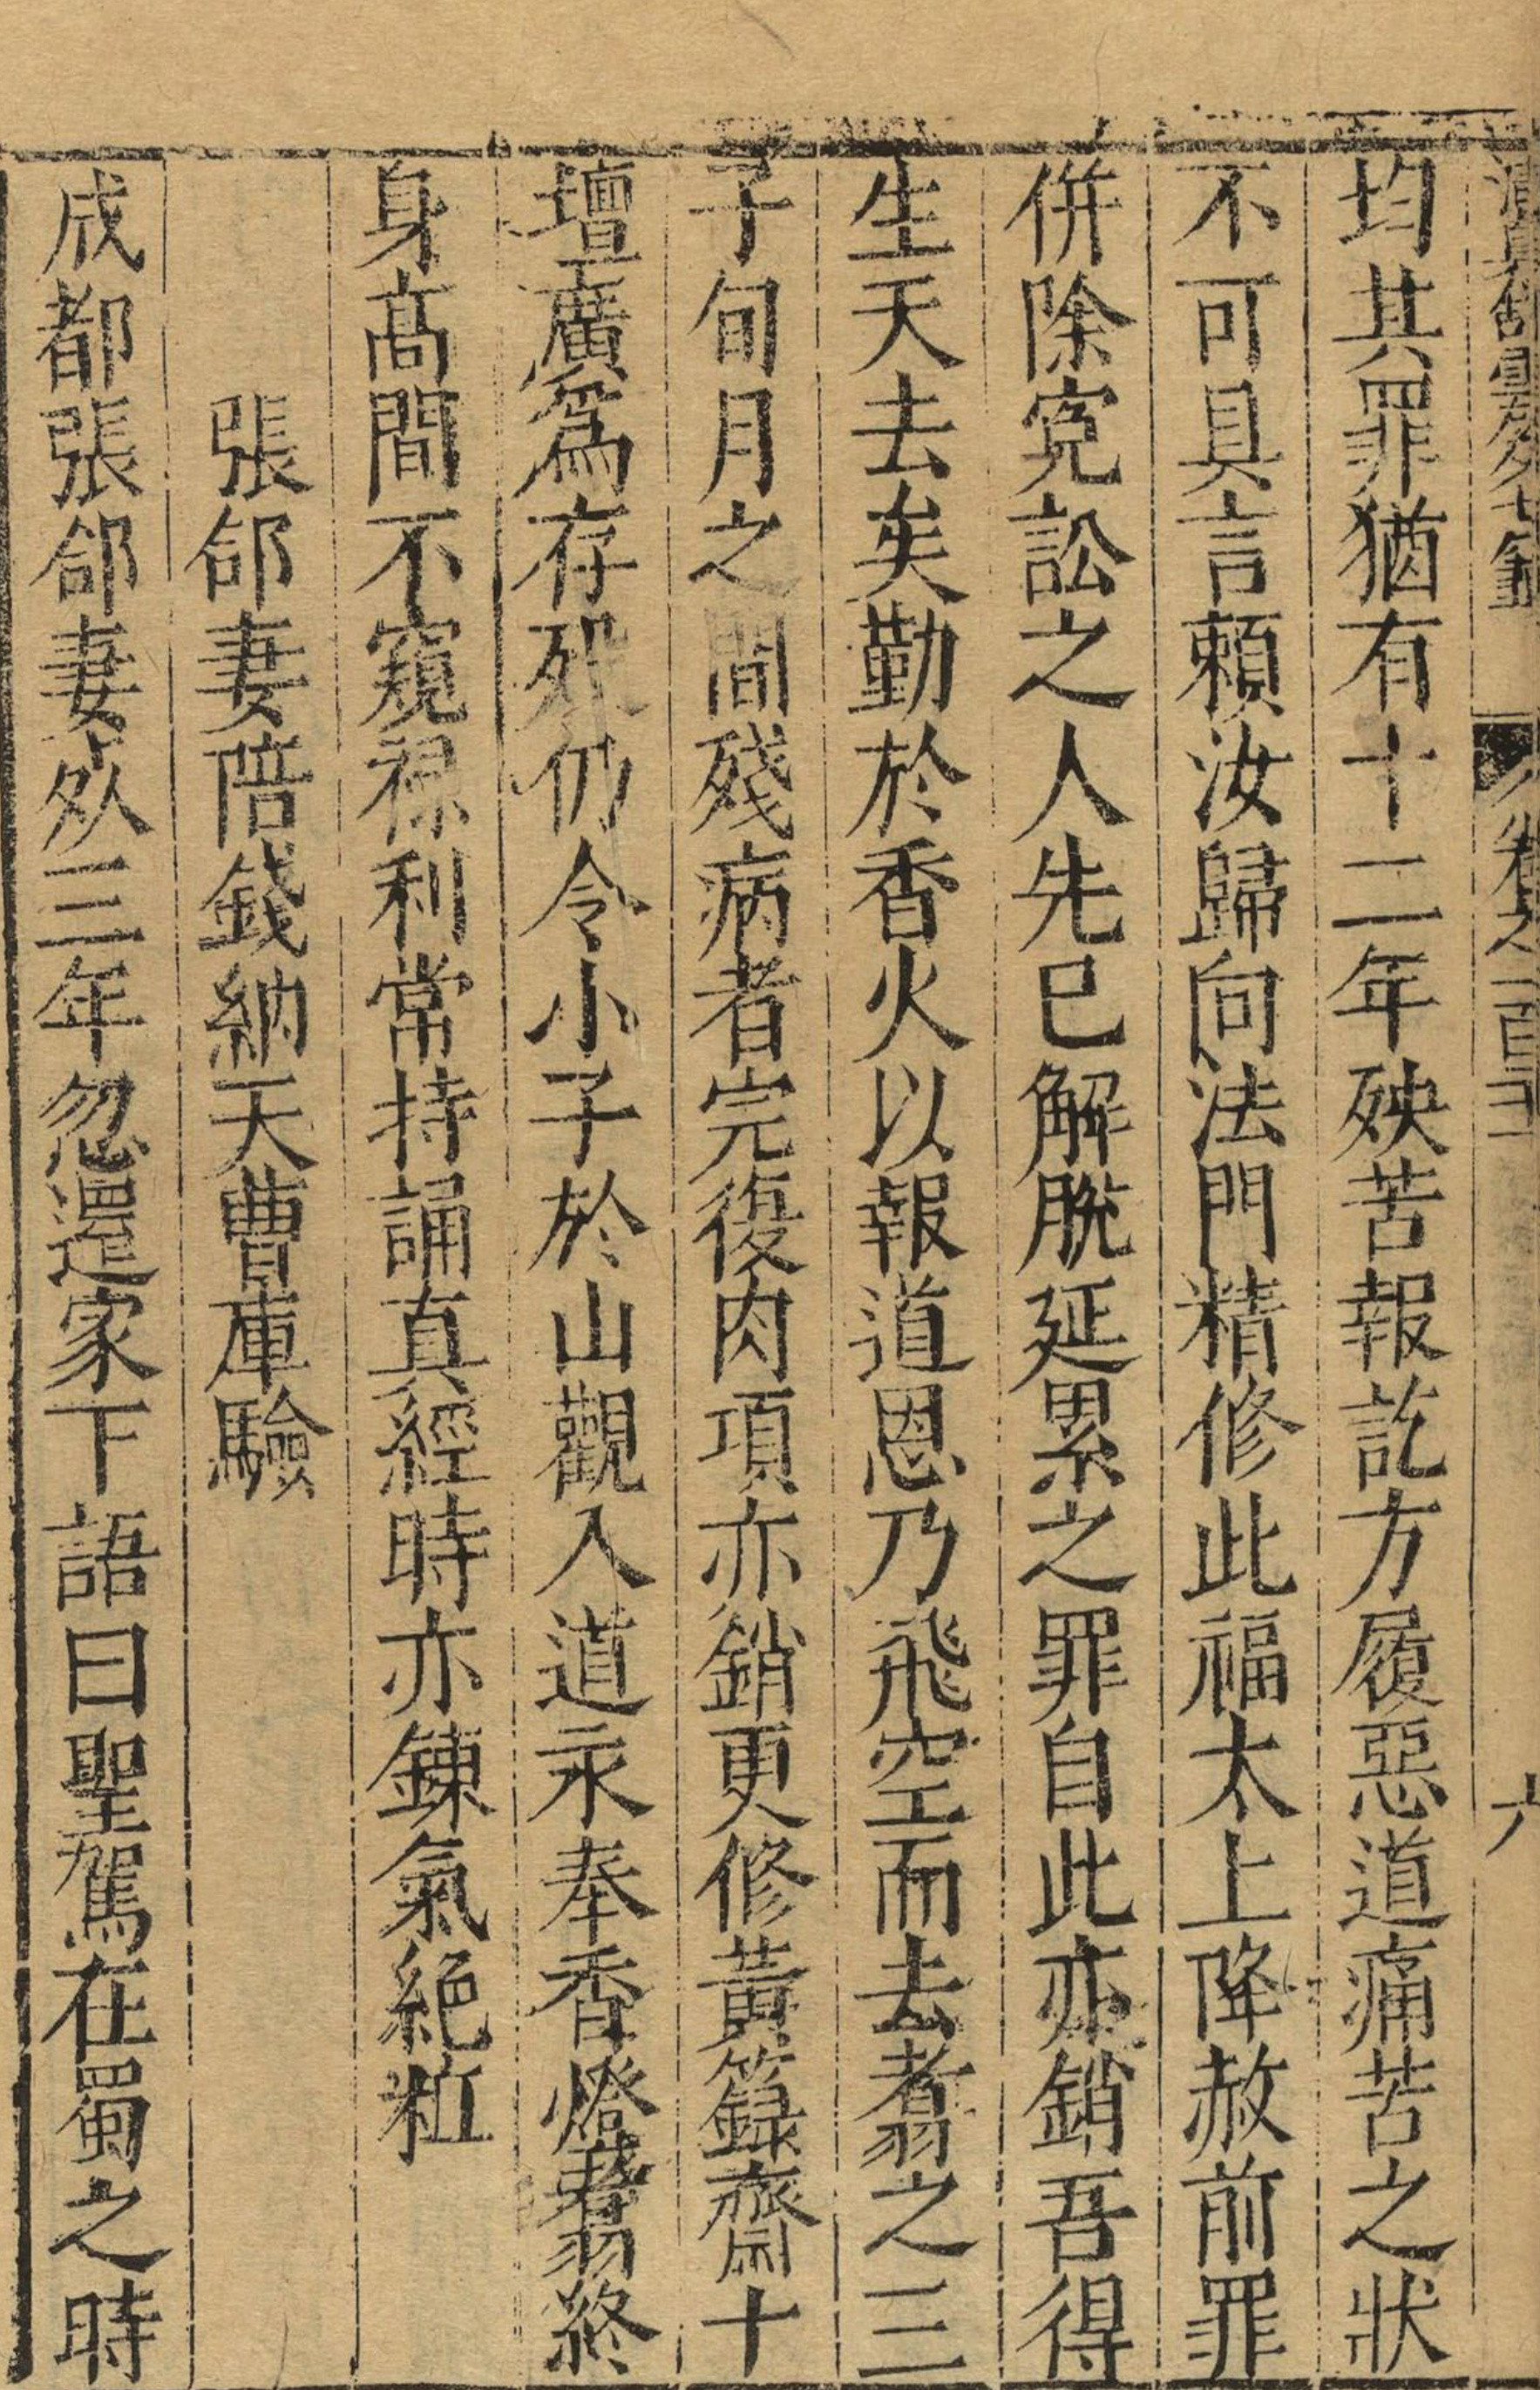 均其罪猶有十二年殃苦報訖方履惡道痛苦之狀
不可具言頼汝歸向法門精修此福太上降赦前罪
併除寃訟之人先巳解脫延累之罪自此亦銷吾得
生天去矣勤於香火以報道恩乃飛空而去翥之三
子旬月之間殘病者完復肉項亦銷更修黃籙齋十
壇廣爲存歿仍令小子於山觀入道永奉香燈翥終
身高間不窺祿利常持誦真經時亦錬氣絕粒
張郃妻陪錢納天曹庫驗
成都張郃妻死三年忽還家下語曰聖駕在蜀之時